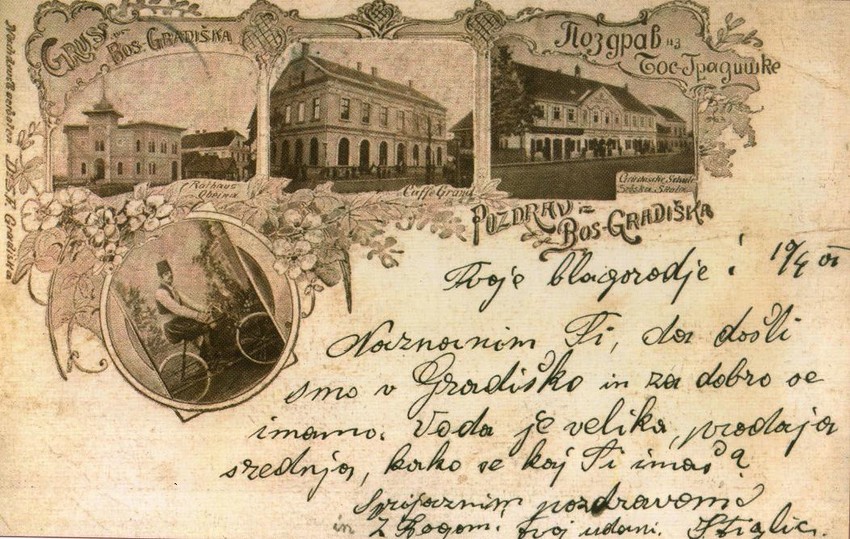 GRUSS aus
BOS-GRADIŠKA
Поздрав из
Бос-Градишке
Rathaus
Obćina
Caffe Grand
Griechische Schule
Srbska Škola
POZDRAV iz
BOS-GRADIŠKA
Nachdruck verboten D.S.A. Gradiška
Tvoje blagorodje!
Naznanim Ti, da došli
smo v Gradiško in za dobro se
imamo. Voda je velika, prodaja
srednja, kako se kaj Ti imaš?
S prijaznim pozdravom
in Z Bogom! tvoj udani. Stiglic